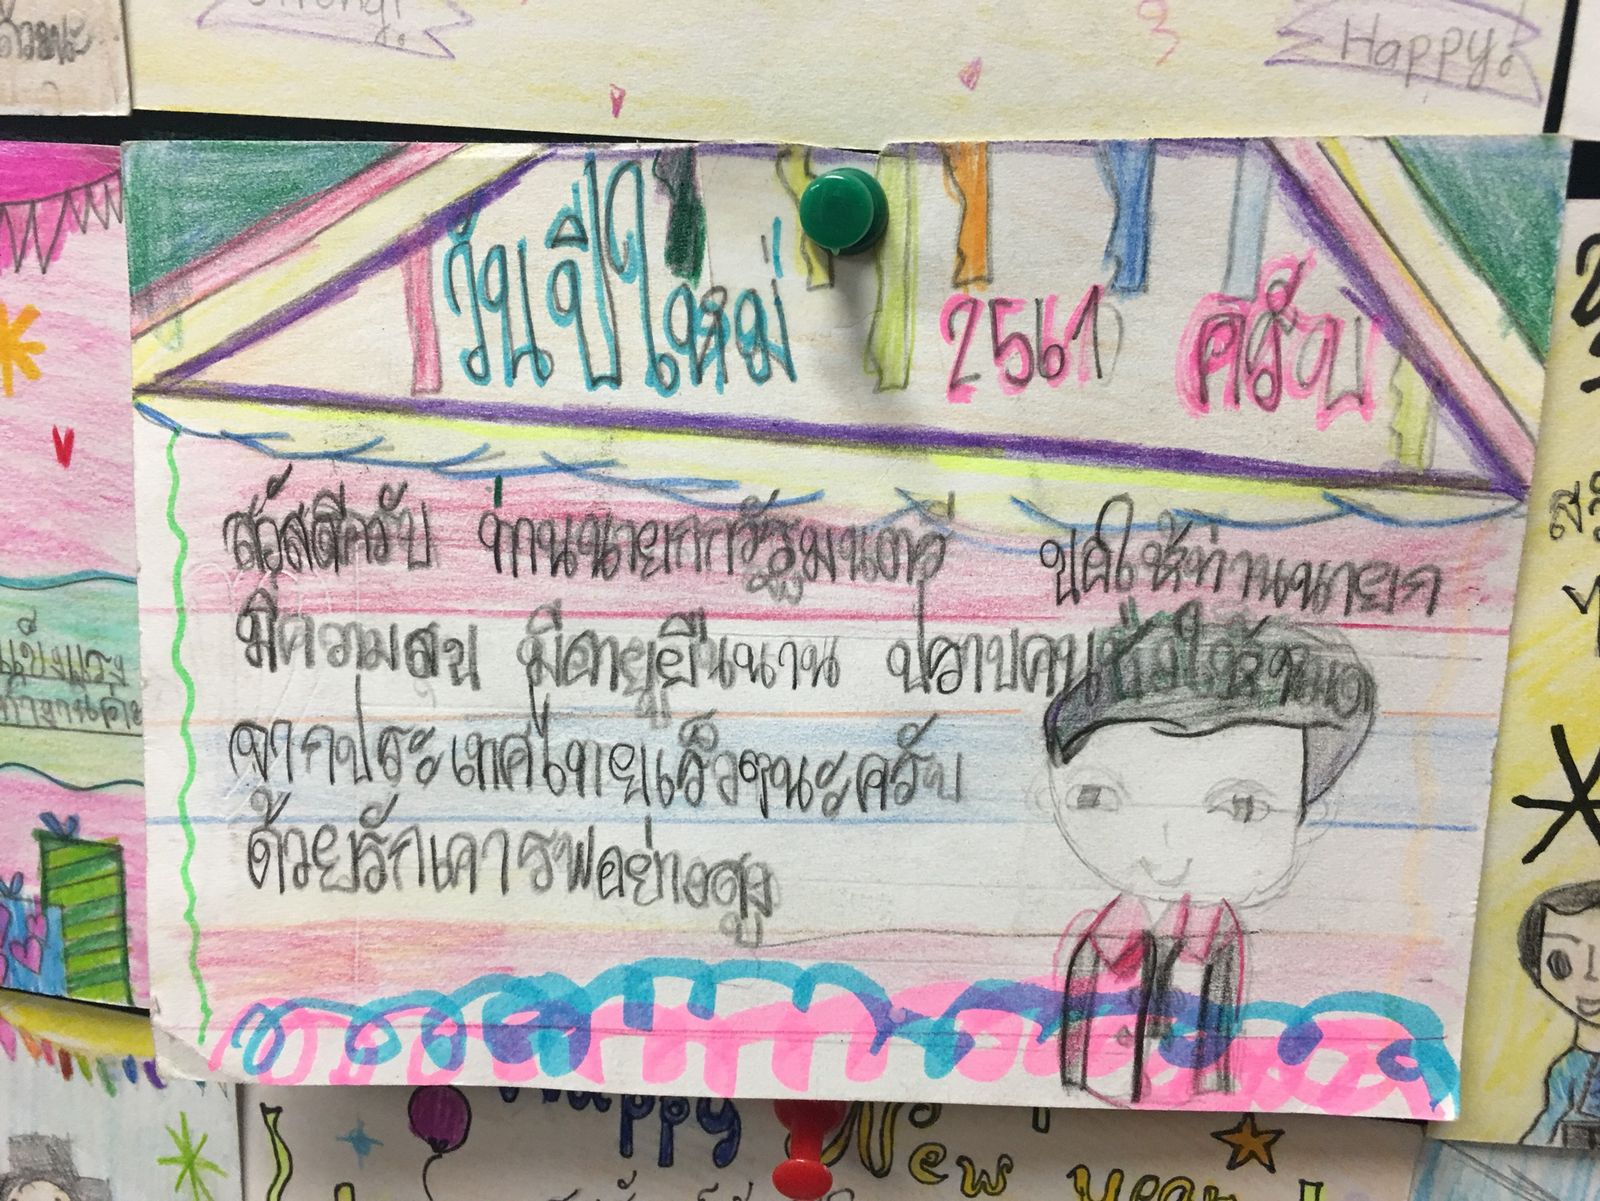 Strong!
Happy!
ด้วยนะ
วันปีใหม่ 2561 ครับ
สวัสดีครับ ท่านนายกกรัฐมนตรี ขอให้ท่านนายก
มีความสุข มีอายุยืนนาน ปราบคน
จากประเทศไทยเร็วๆนะครับ
ด้วยรักเคารพอย่างสูง
แข็งแรง
Happy New Year!